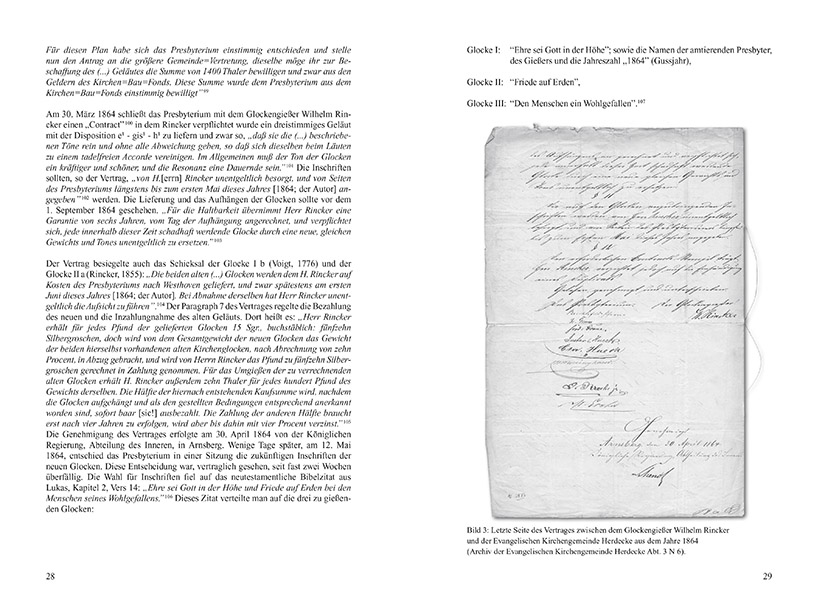 Für diesen Plan habe sich das Presbyterium einstimmig entschieden und stelle
nun den Antrag an die größere Gemeinde=Vertretung, dieselbe möge ihr zur Be-
schaffung des (...) Geläutes die Summe von 1400 Thaler bewilligen und zwar aus den
Geldern des Kirchen=Bau=Fonds. Diese Summe wurde dem Presbyterium aus dem
Kirchen=Bau=Fonds einstimmig bewilligt"⁹⁹
Am 30. März 1864 schließt das Presbyterium mit dem Glockengießer Wilhelm Rin-
cker einen „Contract"¹⁰⁰ in dem Rincker verpflichtet wurde ein dreistimmiges Geläut
mit der Disposition e¹ - gis¹ - h¹ zu liefern und zwar so, „daß sie die (...) beschriebe-
nen Töne rein und ohne alle Abweichung geben, so daß sich dieselben beim Läuten
zu einem tadelfreien Accorde vereinigen. Im Allgemeinen muß der Ton der Glocken
ein kräftiger und schöner, und die Resonanz eine Dauernde sein."¹⁰¹ Die Inschriften
sollten, so der Vertrag, „von H.[errn] Rincker unentgeltlich besorgt, und von Seiten
des Presbyteriums längstens bis zum ersten Mai dieses Jahres [1864; der Autor] an-
gegeben"¹⁰² werden. Die Lieferung und das Aufhängen der Glocken sollte vor dem
1. September 1864 geschehen. „Für die Haltbarkeit übernimmt Herr Rincker eine
Garantie von sechs Jahren, vom Tag der Aufhängung angerechnet, und verpflichtet
sich, jede innerhalb dieser Zeit schadhaft werdende Glocke durch eine neue, gleichen
Gewichts und Tones unentgeltlich zu ersetzen."¹⁰³
Der Vertrag besiegelte auch das Schicksal der Glocke I b (Voigt, 1776) und der
Glocke II a (Rincker, 1855): „Die beiden alten (...) Glocken werden dem H. Rincker auf
Kosten des Presbyteriums nach Westhoven geliefert, und zwar spätestens am ersten
Juni dieses Jahres [1864; der Autor]. Bei Abnahme derselben hat Herr Rincker unent-
geltlich die Aufsicht zu führen".¹⁰⁴ Der Paragraph 7 des Vertrages regelte die Bezahlung
des neuen und die Inzahlungnahme des alten Geläuts. Dort heißt es: „Herr Rincker
erhält für jedes Pfund der gelieferten Glocken 15 Sgr., buchstäblich: fünfzehn
Silbergroschen, doch wird von dem Gesamtgewicht der neuen Glocken das Gewicht
der beiden hierselbst vorhandenen alten Kirchenglocken, nach Abrechnung von zehn
Procent, in Abzug gebracht, und wird von Herrn Rincker das Pfund zu fünfzehn Silber-
groschen gerechnet in Zahlung genommen. Für das Umgießen der zu verrechnenden
alten Glocken erhält H. Rincker außerdem zehn Thaler für jedes hundert Pfund des
Gewichts derselben. Die Hälfte der hiernach entstehenden Kaufsumme wird, nachdem
die Glocken aufgehängt und als den gestellten Bedingungen entsprechend anerkannt
worden sind, sofort baar [sic!] ausbezahlt. Die Zahlung der anderen Hälfte braucht
erst nach vier Jahren zu erfolgen, wird aber bis dahin mit vier Procent verzinst."¹⁰⁵
Die Genehmigung des Vertrages erfolgte am 30. April 1864 von der Königlichen
Regierung, Abteilung des Inneren, in Arnsberg. Wenige Tage später, am 12. Mai
1864, entschied das Presbyterium in einer Sitzung die zukünftigen Inschriften der
neuen Glocken. Diese Entscheidung war, vertraglich gesehen, seit fast zwei Wochen
überfällig. Die Wahl für Inschriften fiel auf das neutestamentliche Bibelzitat aus
Lukas, Kapitel 2, Vers 14: „Ehre sei Gott in der Höhe und Friede auf Erden bei den
Menschen seines Wohlgefallens."¹⁰⁶ Dieses Zitat verteilte man auf die drei zu gießen-
den Glocken:
28
Glocke I: "Ehre sei Gott in der Höhe"; sowie die Namen der amtierenden Presbyter,
des Gießers und die Jahreszahl „1864" (Gussjahr),
Glocke II: "Friede auf Erden",
Glocke III: "Den Menschen ein Wohlgefallen".¹⁰⁷
Arnsberg den 30 April 1864
Bild 3: Letzte Seite des Vertrages zwischen dem Glockengießer Wilhelm Rincker
und der Evangelischen Kirchengemeinde Herdecke aus dem Jahre 1864
(Archiv der Evangelischen Kirchengemeinde Herdecke Abt. 3 N 6).
29